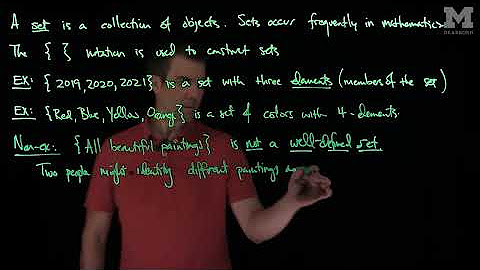 A set is a collection of objects. Sets occur frequently in mathematics.
M
DEARBORN
The { } notation is used to construct sets
Ex: {2019, 2020, 2021} is a set with three elements (members of the set)
Ex: {Red, Blue, Yellow, Orange} is a set of colors with 4-elements.
Non-ex: {All beautiful paintings} is not a well-defined set.
Two people might identify different paintings as